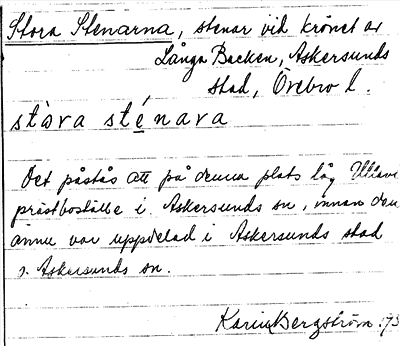 Stora Stenarna, stenar vid krönet av
Långa Backen, Askersunds
stad, Örebro l.
stòra sténara
Det påstås att på denna plats låg
prästboställe i Askersunds sn, innan den
ännu var uppdelad i Askersunds stad
o. Askersunds sn.
Karin Bergström 193